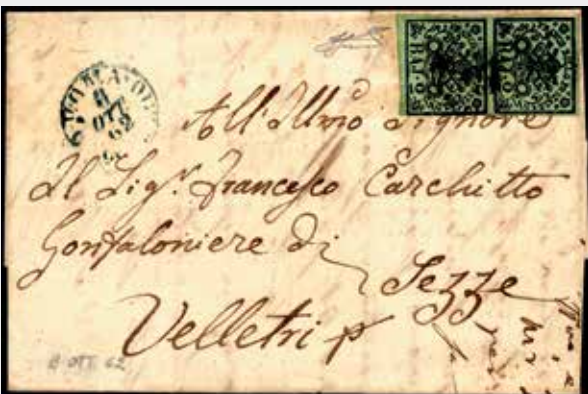 ROMA
8
OTT
62
BAJ. 2
BAJ. 2
All'Illmo Signore
Il Sigr. Francesco Carchitto
Gonfaloniere di
Sezze
Velletri p
8 OTT 62